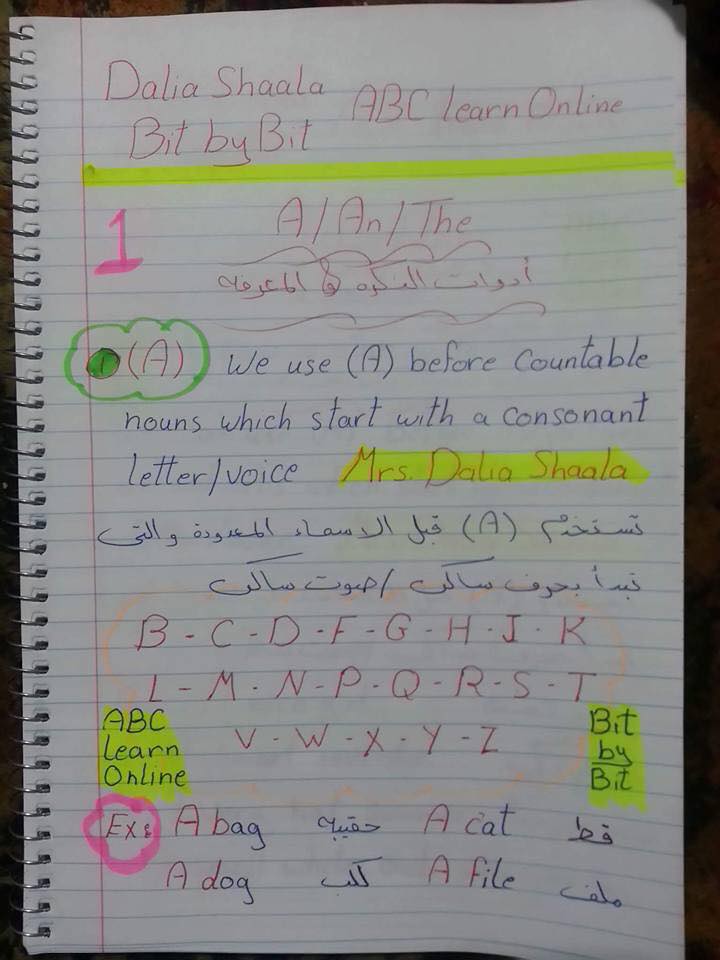 Dalia Shaala ABC learn Online
Bit by Bit
1 A/An/The
أدوات النكرة و المعرفه
1 (A) We use (A) before countable
nouns which start with a consonant
letter/voice Mrs. Dalia Shaala
تستخدم (A) قبل الاسماء المعدودة والتى
تبدأ بحرف ساكن / صوت ساكن
B - C - D - F - G - H - J - K
L - M - N - P - Q - R - S - T
V - W - X - Y - Z
ABC
learn
Online
Bit
by
Bit
Ex: A bag حقيبه A cat قط
A dog كلب A file ملف